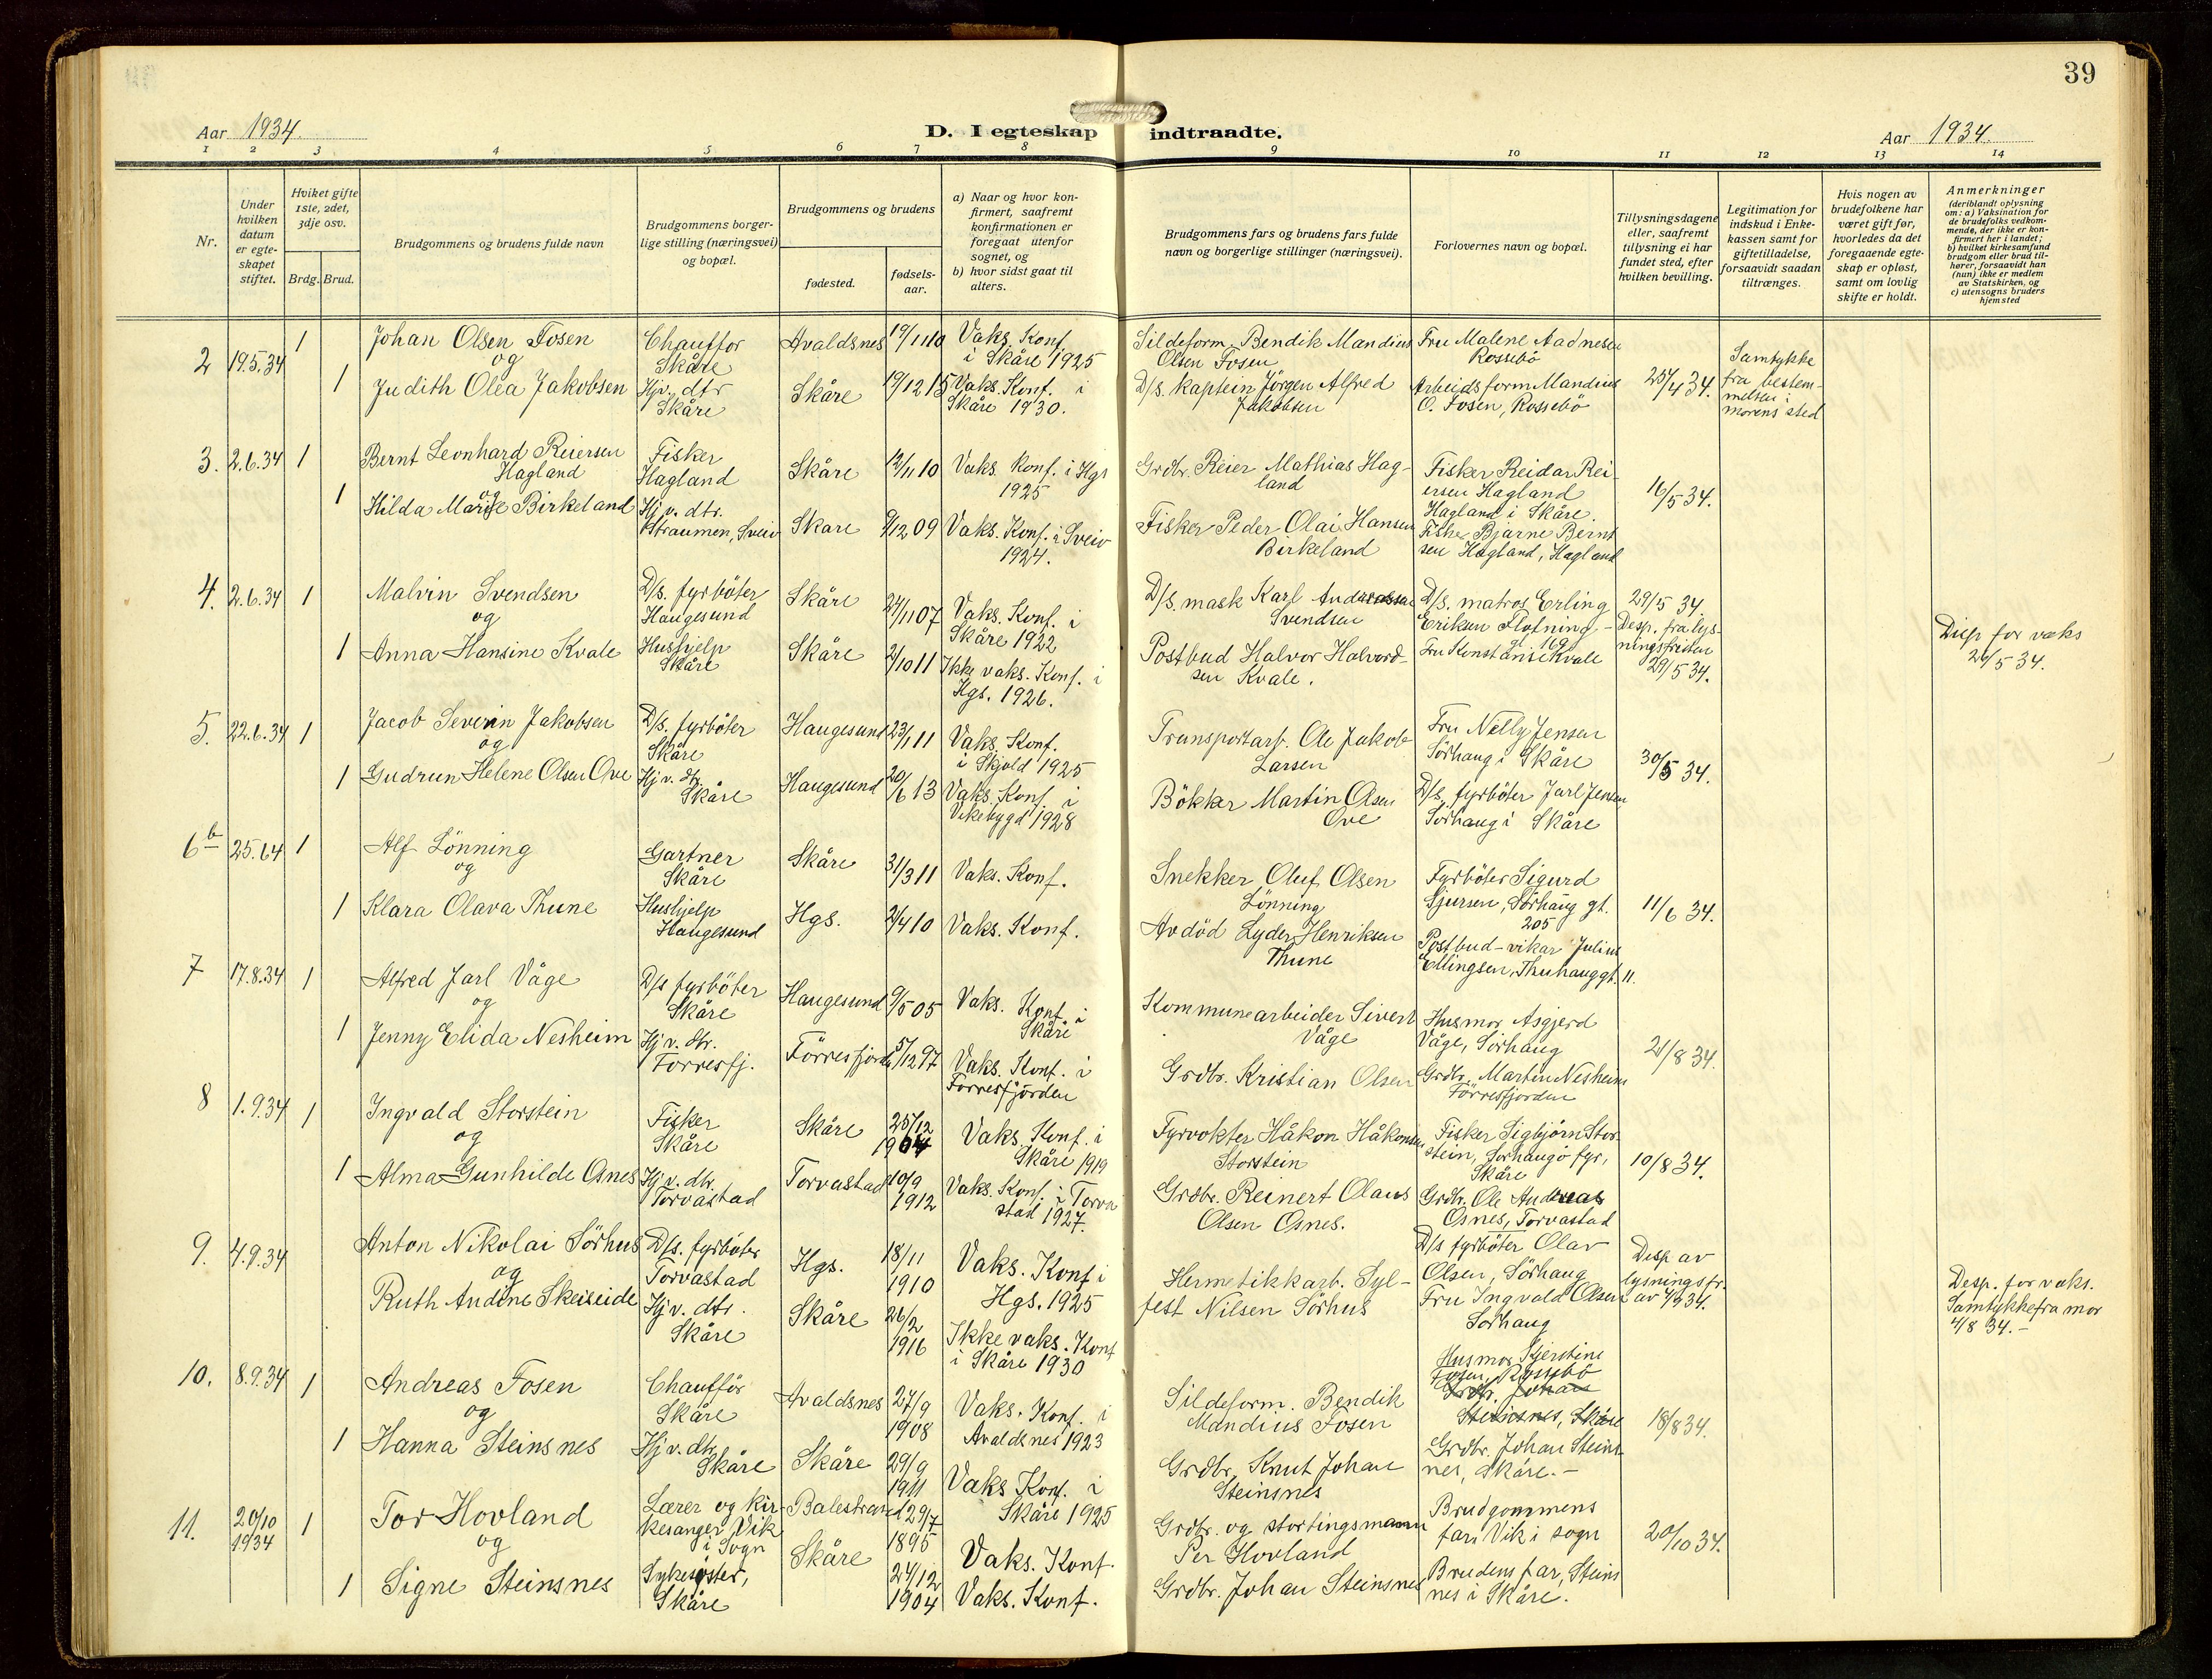 39
Aar 1934.
D. I egteskap indtraadte.
Aar 1934.
1 2 3 4 5 6 7 8 9 10 11 12 13 14
Nr.
Under hvilken datum er egteskapet stiftet.
Hviket gifte 1ste, 2det, 3dje osv.
Brdg. Brud.
Brudgommens og brudens fulde navn
Brudgommens borgerlige stilling (næringsvei) og bopæl.
Brudgommens og brudens
fødested.
fødselsaar.
a) Naar og hvor konfirmert, saafremt konfirmationen er foregaat utenfor sognet, og
b) hvor sidst gaat til alters.
Brudgommens fars og brudens fars fulde navn og borgerlige stillinger (næringsvei).
Forlovernes navn og bopæl.
Tillysningsdagene eller, saafremt tillysning ei har fundet sted, efter hvilken bevilling.
Legitimation for indskud i Enkekassen samt for giftetilladelse, forsaavidt saadan tiltrænges.
Hvis nogen av brudefolkene har været gift før, hvorledes da det foregaaende egteskap er opløst, samt om lovlig skifte er holdt.
Anmerkninger (deriblandt oplysning om: a) Vaksination for de brudefolks vedkommende, der ikke er konfirmert her i landet; b) hvilket kirkesamfund brudgom eller brud tilhører, forsaavidt han (hun) ikke er medlem av Statskirken, og c) utensogns bruders hjemsted
2 19.5.34 1 Johan Olsen Fosen Chauffør Skåre Avaldsnes 19/11 10 Vaks. Konf. i Skåre 1925 Sildeform. Bendik Mandius Olsen Fosen Fru Malene Aadnesen Rossebö
og
1 Judith Olea Jakobsen Hjv. dtr Skåre Skåre 19/12 15 Vaks. Konf. i Skåre 1930. D/s. kaptein Jörgen Alfred Jakobsen Arbeidsform Mandius O. Fosen, Rossebö 25/4 34. Samtykke fra bestemmelsen i morens sted
3. 2.6.34 1 Bernt Leonhard Reiersen Hagland Fisker Hagland Skåre 12/11 10 Vaks. Konf. i Hgs 1925 Grdbr. Reier Mathias Hagland Fisker Reidar Reiersen Hagland Hagland i Skåre 16/5 34.
og
1 Hilda Marie Birkeland Hj v. dtr. Straumen, Sveio Skåre 9/12 09 Vaks. Konf. i Sveio 1924. Fisker Peder Olai Hansen Birkeland Fisker Bjarne Berntsen Hagland, Hagland
4. 2.6.34 1 Malvin Svendsen D/s. fyrböter Haugesund Skåre 27/11 07 Vaks. Konf. i Skåre 1922 D/s. mask Karl Andreassen Svendsen D/s. matros Erling Eriksen Flotningt. 169 29/5 34. Desp. fra lysningsfristen 29/5 34. Disp for vaks 26/5 34.
og
1 Anna Hansine Kvale Hushjelp Skåre Skåre 2/10 11 Ikke vaks. Konf. i Hgs. 1926. Postbud Halvor Halvordsen Kvale. Fru Konstanse Kvale
5. 22.6.34 1 Jacob Severin Jakobsen D/s. fyrböter Skåre Haugesund 23/1 11 Vaks. Konf. i Skjold 1925 Transportarb. Ole Jakob Larsen Fru Nelly Jensen Sörhaug i Skåre 30/5 34.
og
1 Gudrun Helene Olsen Ove Hj v. dtr. Skåre Haugesund 20/6 13 Vaks. Konf. i Vikebygd 1928 Bökker Martin Olsen Ove D/s. fyrböter Jarl Jensen Sörhaug i Skåre
6b 25.6 4 1 Alf Lönning Gartner Skåre Skåre 31/3 11 Vaks. Konf. Snekker Oluf Olsen Lönning Fyrböter Sigurd Sjursen, Sörhaug gt. 205 11/6 34.
og
1 Klara Olava Thune Hushjelp Haugesund Hgs. 2/4 10 Vaks. Konf. Avdöd Lyder Henriksen Thune Postbud-vikar Julius Ellingsen, Thuhauggt. 11.
7 17.8.34 1 Alfred Jarl Våge D/s fyrböter Skåre Haugesund 9/5 05 Vaks. Konf. i Skåre Kommunearbeider Sivert Våge Husmor Asgjerd Våge, Sörhaug 21/8 34.
og
1 Jenny Elida Nesheim Hj v. dtr. Förresfj. Förresfjorden 5/12 97 Vaks. Konf. i Förresfjorden Grdbr. Kristian Olsen Grdbr. Martin Nesheim Förresfjorden
8 1.9.34 1 Ingvald Storstein Fisker Skåre Skåre 25/12 1904 Vaks. Konf. i Skåre 1919 Fyrvokter Håkon Håkonsen Storstein Fisker Sigbjörn Storstein, Sörhaugö fyr, Skåre 10/8 34.
og
1 Alma Gunhilde Osnes Hj v. dtr. Torvastad Torvastad 10/9 1912 Vaks. Konf. i Torvastad 1927. Grdbr. Reinert Olaus Olsen Osnes. Grdbr. Ole Andreas Osnes, Torvastad
9. 4.9.34 Anton Nikolai Sörhus D/s. fyrböter Torvastad Hgs. 18/11 1910 Vaks. Konf i Hgs. 1925 Hermetikkarb. Sylfest Nilsen Sörhus D/s fyrböter Olav Olsen, Sörhaug Desp av lysningsfr. av 4/9 34. Desp. for vaks. Samtykke fra mor 4/8 34.-
og
Ruth Andine Skeiseide Hj v. dtr. Skåre Skåre 26/2 1916 Ikke vaks. Konf i Skåre 1930 Fru Ingvald Olsen Sörhaug
10. 8.9.34 1 Andreas Fosen Chaufför Skåre Avaldsnes 27/9 1908 Vaks. Konf. i Avaldsnes 1923 Sildeform. Bendik Mandius Fosen Husmor Kjerstine Fosen, Rossebö Grdbr. Johan Steinsnes, Skåre 18/8 34.
og
1 Hanna Steinsnes Hj v. dtr. Skåre Skåre 29/9 1911 Vaks Konf. i Skåre 1925 Grdbr. Knut Johan Steinsnes Grdbr. Johan Steinsnes, Skåre.-
11. 20/10 1934 1 Tor Hovland Lærer og kirkesanger Vik i Sogn Balestrand 29/7 1895 Vaks. Konf. Grdbr. og stortingsmann Per Hovland Brudgommens far, Vik i sogn 20/10 34.
og
1 Signe Steinsnes Sykesöster, Skåre Skåre 24/12 1904 Vaks. Konf. Grdbr. Johan Steinsnes Brudens far, Steinsnes i Skåre.